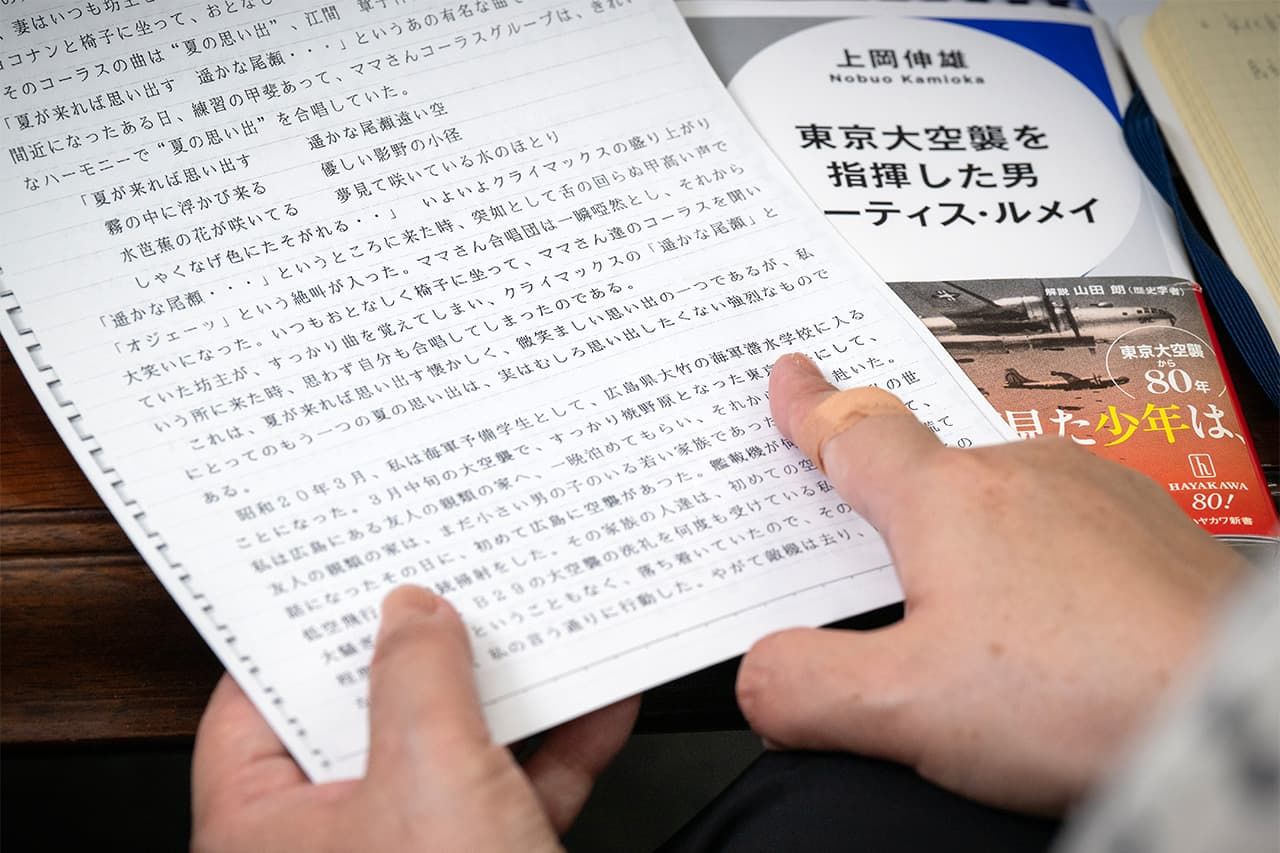 妻はいつも坊主
コナンと椅子に坐って、おとな
そのコーラスの曲は“夏の思い出”、江間 章子
「夏が来れば思い出す 遥かな尾瀬・・・」というあの有名な曲
間近になったある日、練習の甲斐あって、ママさんコーラスグループは、きれい
なハーモニーで“夏の思い出”を合唱していた。
「夏が来れば思い出す 遥かな尾瀬遠い空
霧の中に浮かび来る 優しい影野の小径
水芭蕉の花が咲いてる 夢見て咲いている水のほとり
しゃくなげ色にたそがれる・・」 いよいよクライマックスの盛り上がり
「遥かな尾瀬・・・」というところに来た時、突如として舌の回らぬ甲高い声で
「オジェーツ」という絶叫が入った。ママさん合唱団は一瞬唖然とし、それから
大笑いになった。いつもおとなしく椅子に坐って、ママさん達のコーラスを聞い
ていた坊主が、すっかり曲を覚えてしまい、クライマックスの「遥かな尾瀬」と
いう所に来た時、思わず自分も合唱してしまったのである。
これは、夏が来れば思い出す懐かしく、微笑ましい思い出の一つであるが、私
にとってのもう一つの夏の思い出は、実はむしろ思い出したくない強烈なもので
ある。
昭和20年3月、私は海軍予備学生として、広島県大竹の海軍潜水学校に入る
ことになった。3月中旬の大空襲で、すっかり焼野原となった東京 にして、
私は広島にある友人の親類の家へ、一晩泊めてもらい、それから 赴いた。
友人の親類の家は、まだ小さい男の子のいる若い家族であった の世
話になったその日に、初めて広島に空襲があった。艦載機が何 て、
低空飛行 銃掃射をした。その家族の人達は、初めての空
大騒 B29の大空襲の洗礼を何度も受けている私
程度 ということもなく、落ち着いていたので、その
、私の言う通りに行動した。やがて敵機は去り、
上岡伸雄
Nobuo Kamioka
東京大空襲を
指揮した男
ーティス・ルメイ
解説 山田 朗(歴史学者)
東京大空襲
から
80年
見た少年は、
h
HAYAKAWA
80!
ハヤカワ新書